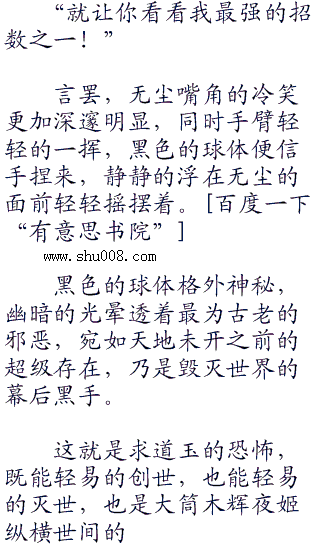 “就让你看看我最强的招
数之一！”
言罢，无尘嘴角的冷笑
更加深邃明显，同时手臂轻
轻的一挥，黑色的球体便信
手捏来，静静的浮在无尘的
面前轻轻摇摆着。[百度一下
“有意思书院”]
www.shu008.com
黑色的球体格外神秘，
幽暗的光晕透着最为古老的
邪恶，宛如天地未开之前的
超级存在，乃是毁灭世界的
幕后黑手。
这就是求道玉的恐怖，
既能轻易的创世，也能轻易
的灭世，也是大筒木辉夜姬
纵横世间的